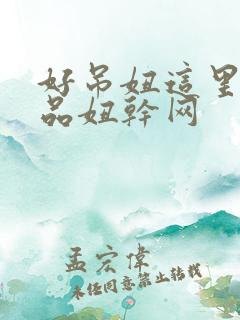 好吊妞這里
品妞幹网
孟宏偉
未经同意禁止转载